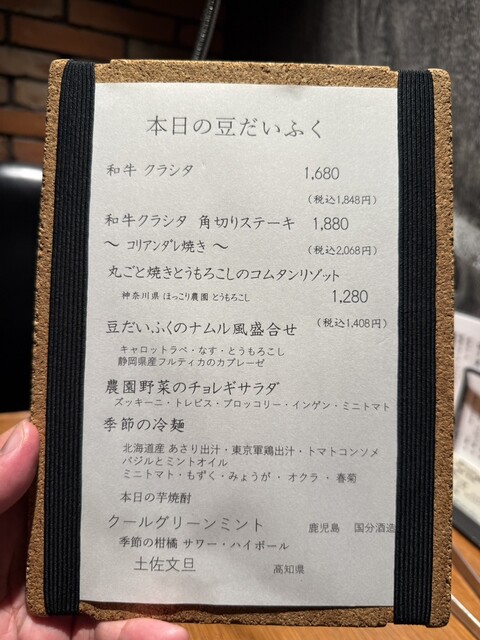 本日の豆だいふく
和牛 クラシタ 1,680
(税込1,848円)
和牛クラシタ 角切りステーキ 1,880
～ コリアンダレ焼き ～ (税込2,068円)
丸ごと焼きとうもろこしのコムタンリゾット
神奈川県 ほっこり農園 とうもろこし 1,280
(税込1,408円)
豆だいふくのナムル風盛合せ
キャロットラペ・なす・とうもろこし
静岡県産フルティカのカプレーゼ
農園野菜のチョレギサラダ
ズッキーニ・トレビス・ブロッコリー・インゲン・ミニトマト
季節の冷麺
北海道産 あさり出汁・東京軍鶏出汁・トマトコンソメ
バジルとミントオイル
ミニトマト・もずく・みょうが・オクラ・春菊
本日の芋焼酎
クールグリーンミント 鹿児島 国分酒造
季節の柑橘 サワー・ハイボール
土佐文旦 高知県